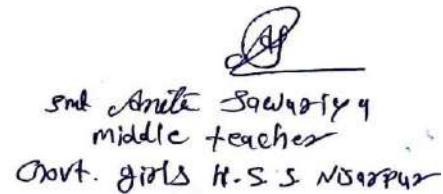 smt Anita Sawariya
middle teacher
Govt. girls H.S.S Nisarpur